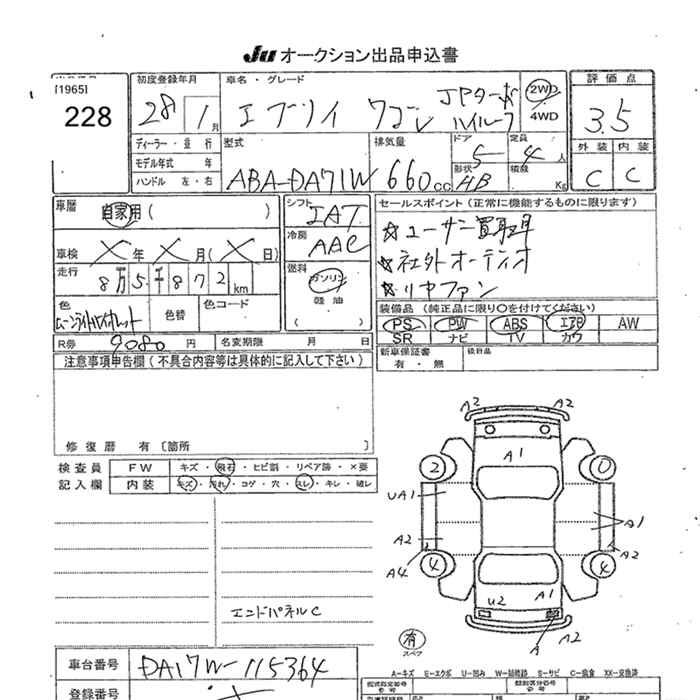 Ju オークション出品申込書
[1965]
228
初度登録年月
28 1月
車名・グレード
エブリイ ワゴン
JPターボ
ハイルーフ
2WD
4WD
評価点
3.5
外装 内装
C C
ディーラー・並行
モデル年式 年
ハンドル 左・右
型式
ABA-DA71W
排気量
660cc
ドア
5
定員
4人
形状
HB
積載
Kg
車歴
自家用( )
車検 X年 X月(X日)
走行
8万5千872km
色
ムーンライトバイオレット
色替
色コード
シフト
IAT
冷房
AAC
燃料
ガソリン
軽油
( )
セールスポイント(正常に機能するものに限ります)
☆ユーザー買取車
☆社外オーディオ
☆リヤファン
装備品(純正品に限り○を付けてください)
PS PW ABS エアB AW
SR ナビ TV カワ
新車保証書
有・無
後日品
R券 9080円
名変期限 月 日
注意事項申告欄(不具合内容等は具体的に記入して下さい)
修復歴 有〔箇所 〕
検査員
記入欄
FW キズ・飛石・ヒビ割・リペア跡・×要
内装 キズ・汚れ・コゲ・穴・スレ・キレ・破レ
エンドパネルC
A2 A2
A1
2 0
UA1
A1
A2 A2
A4
4 4
U2 A1
A A2
有
スペア
A-キズ E-エクボ U-凹み W-補修跡 S-サビ C-腐食 XX-交換済
車台番号
DA17W-115364
登録番号